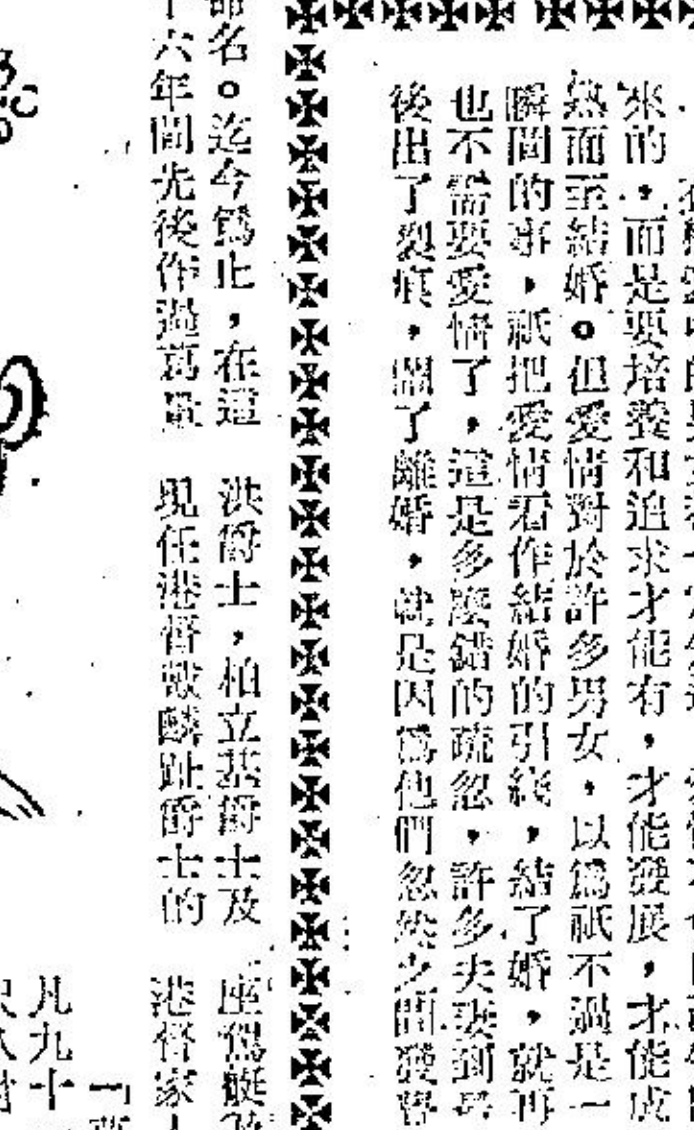 來的,而是要培養和追求才能有,才能發展,才能成
熱而至結婚。但愛情對於許多男女,以為祇不過是一
瞬間的事,祇把愛情看作結婚的引綫,結了婚,就再
也不需要愛情了,這是多麼錯的疏忽,許多夫妻到
後出了裂痕,鬧了離婚,就是因為他們忽然之間發
命名。迄今為止,在這
十六年間先後作過
洪爵士,柏立基爵士及
現任港督戴麟趾爵士的
座駕艇
港督家
凡九十